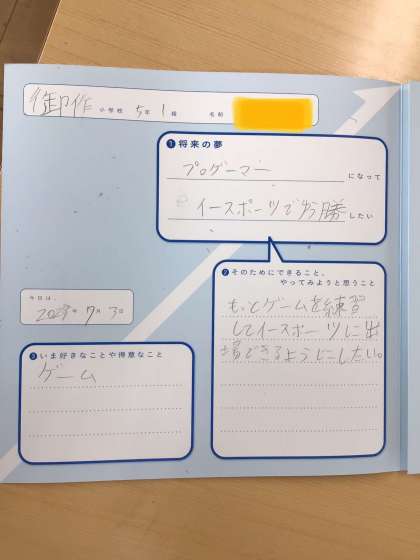 御作 小学校 5年 1組 名前
❶将来の夢
プロゲーマー になって
イースポーツで優勝 したい
❷そのためにできること、
やってみようと思うこと
もっとゲームを練習
してイースポーツに出
場できるようにしたい。
今日は、
年 7月 3日
❸いま好きなことや得意なこと
ゲーム